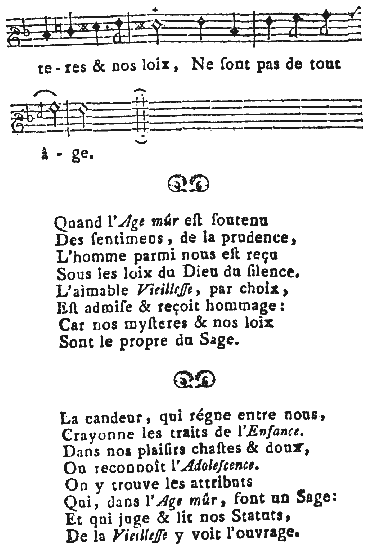 te-res & nos loix, Ne ſont pas de tout
â - ge.
Quand l'Age mûr eſt ſoutenu
Des ſentimens, de la prudence,
L'homme parmi nous eſt reçu
Sous les loix du Dieu du ſilence.
L'aimable Vieilleſſe, par choix,
Eſt admiſe & reçoit hommage:
Car nos myſteres & nos loix
Sont le propre du Sage.
La candeur, qui régne entre nous,
Crayonne les traits de l'Enfance.
Dans nos plaiſirs chaſtes & doux,
On reconnoît l'Adoleſcence.
On y trouve les attributs
Qui, dans l'Age mûr, font un Sage:
Et qui juge & lit nos Statuts,
De la Vieilleſſe y voit l'ouvrage.